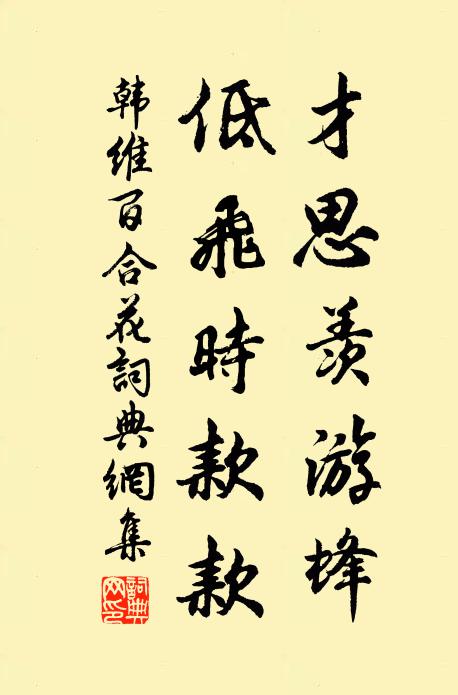 才思羡游蜂
低飛時款款
韩维百合花詞典網集
詞典网印